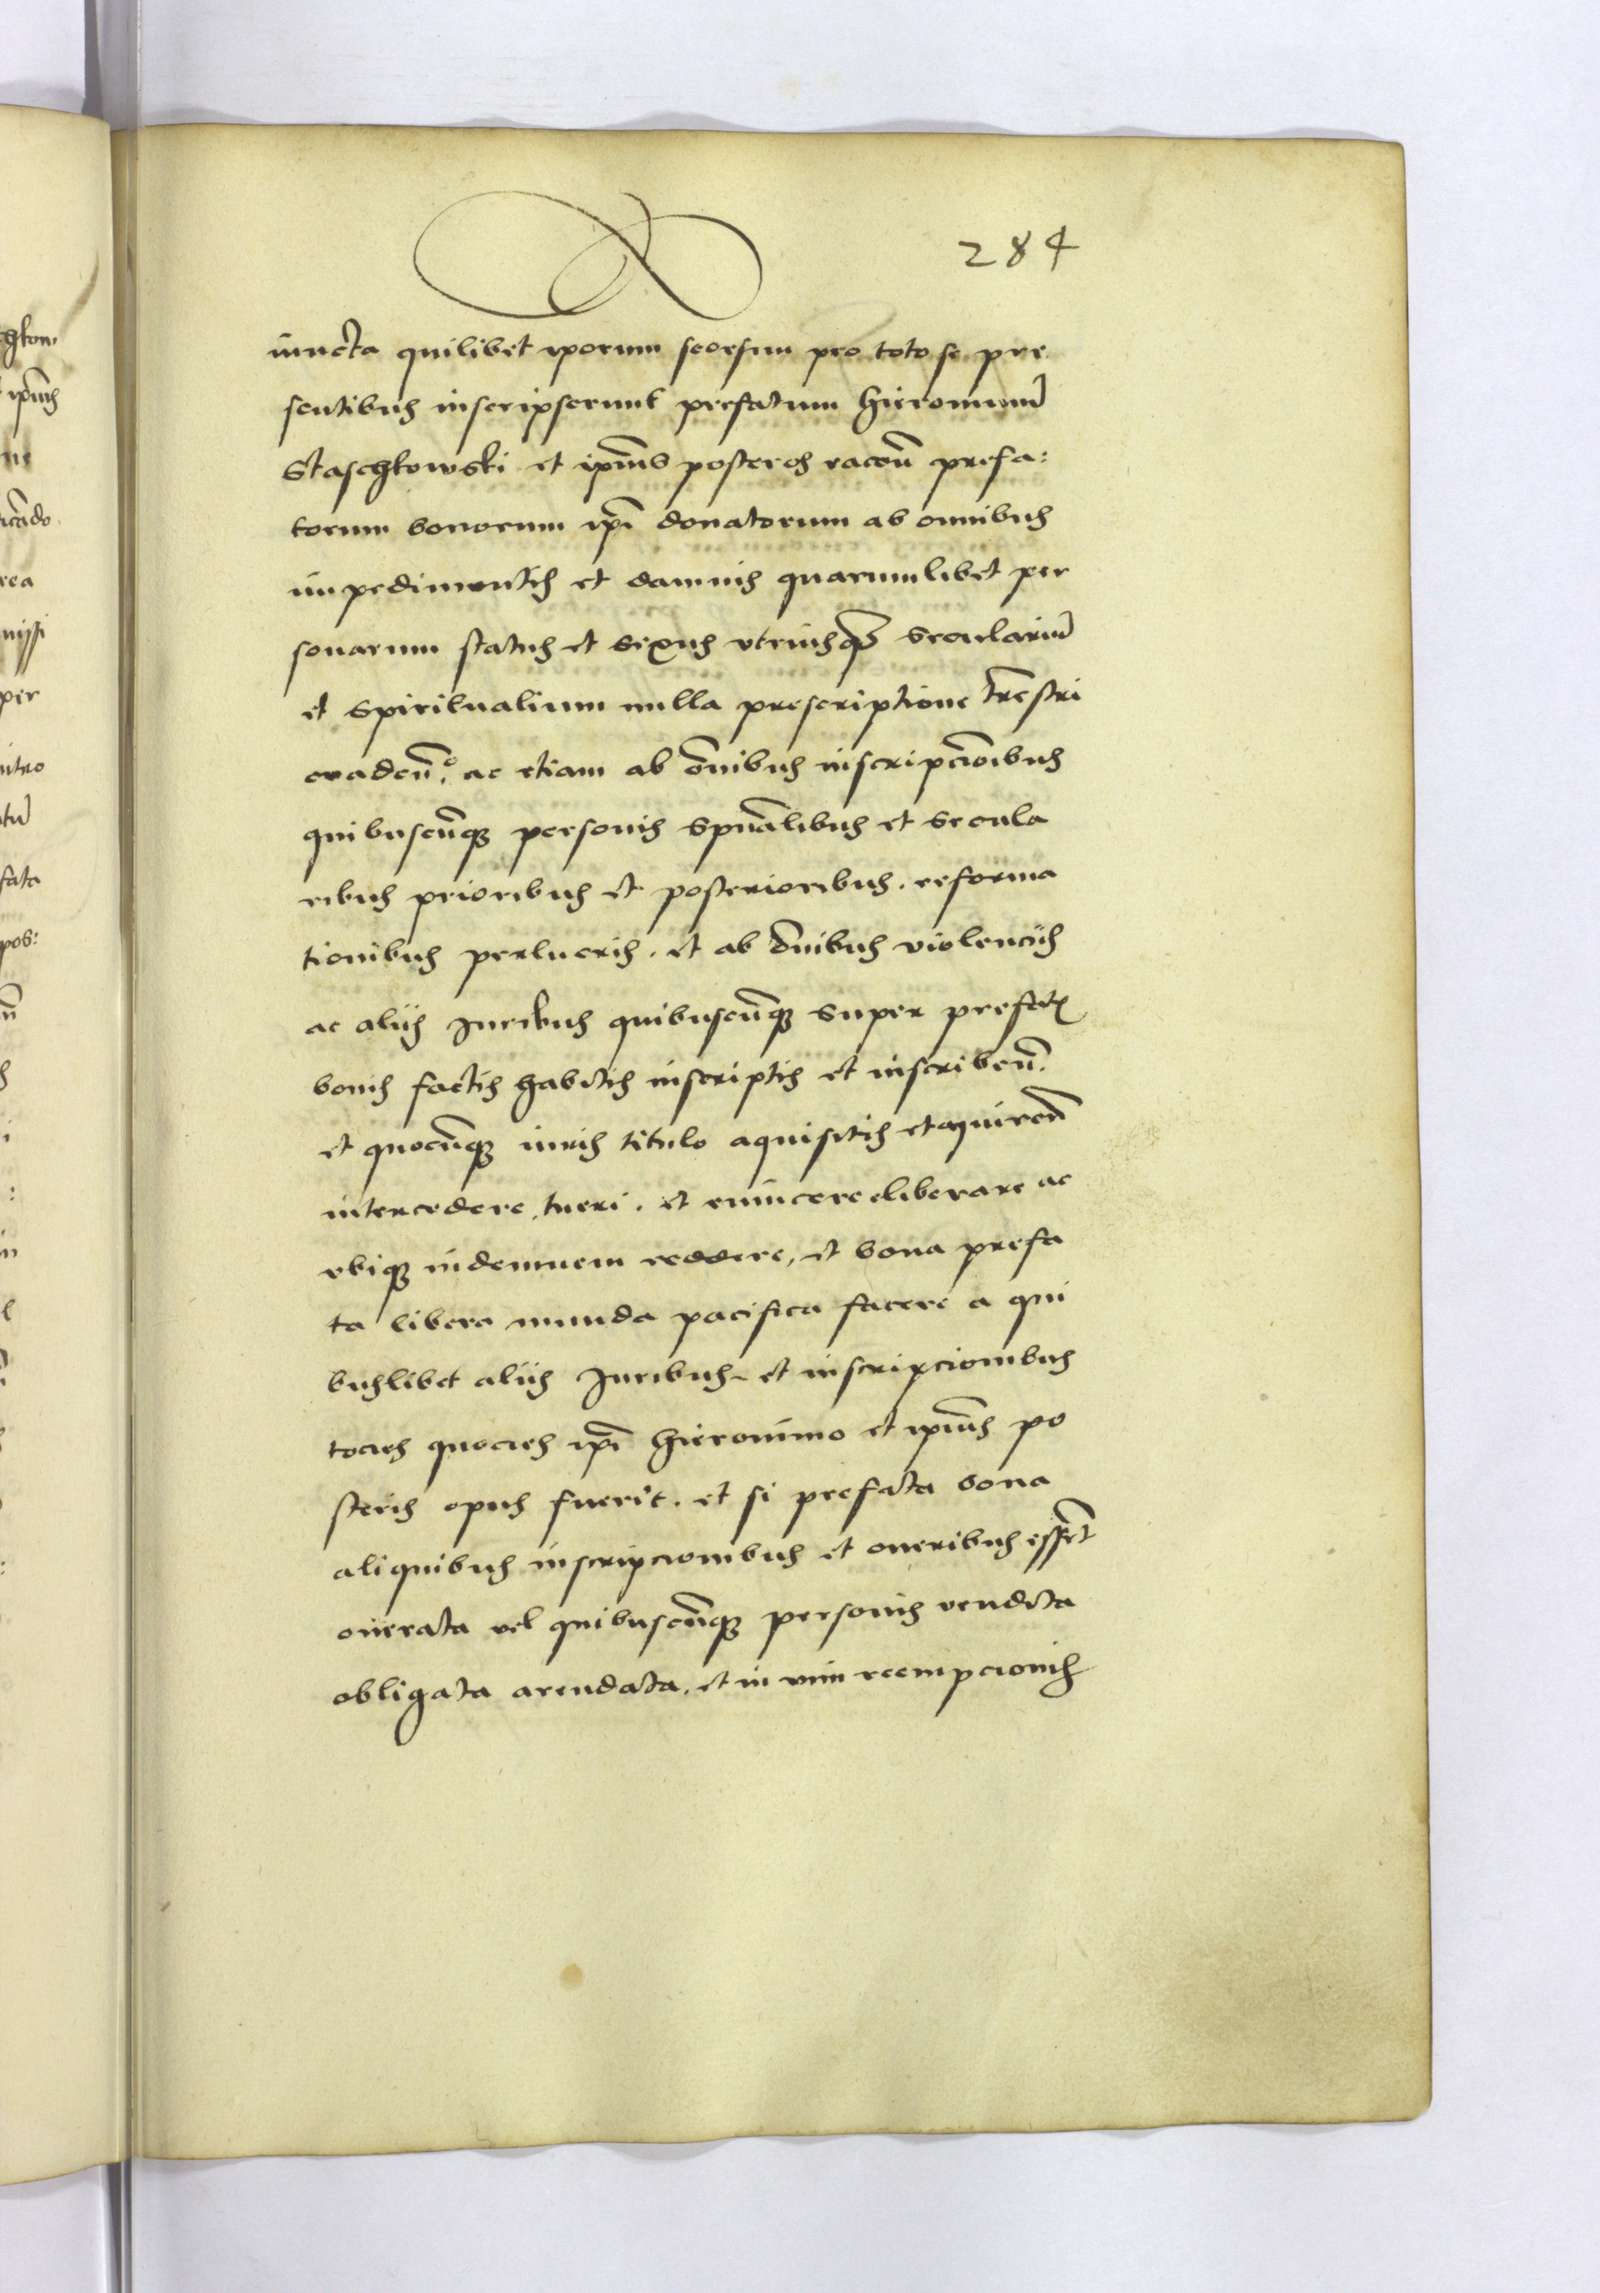 284
iuncta quilibet iporum seorsum pro toto se pre
sentibus inscripserunt prefatum Hieronimū
Staschkowski et ipīus posteros racōn̄ prefa:
torum bonorum ip̄i donatorum ab omnibus
impedimentis et damnis quarumlibet per
sonarum status et sexus vtriusqꝫ seculariū
et spiritualium nulla prescriptione trēstri
euadēn̄. ac etiam ab om̄ibus inscripcīonibus
quibuscūqꝫ personis spūalibus et secula
ribus prioribus et posterioribus. reforma
tionibus perlucris. et ab om̄ibus violencijs
ac alijs Iuribus quibuscūqꝫ super prefatis
bonis factis habitis inscriptis et inscribēn̄.
et quocūqꝫ iuris titulo aquisitis et aquirēn̄
intercedere, tueri. et euincere eliberare ac
vbiqꝫ indemnem reddere, et bona prefa
ta libera munda pacifica facere a qui
buslibet alijs Iuribus et inscripcionibus
tocies quocies ip̄i Hieronimo et ipīus po
steris opus fuerit. et si prefata bona
aliquibus inscripcionibus et oneribus essent
onerata vel quibuscūqꝫ personis vendita
obligata arendata, et in vim reempcionis